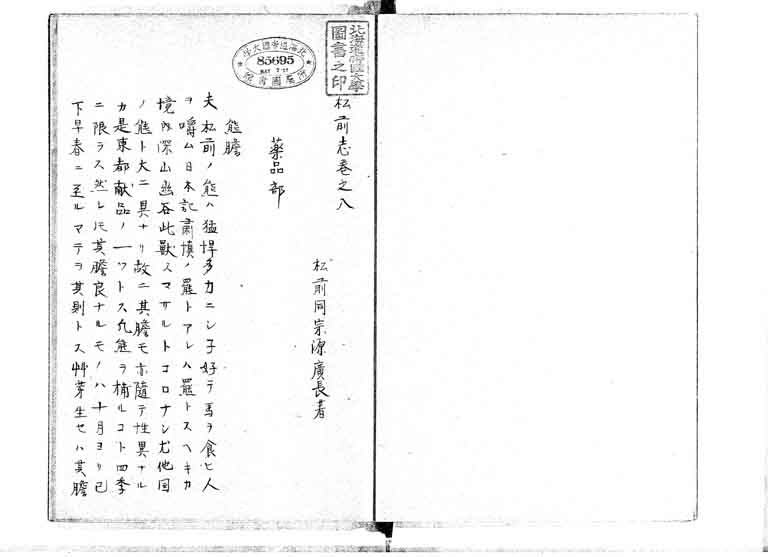 松前志巻之八
松前同宗源廣長著
薬品部
熊膽
夫松前ノ熊ハ猛悍多力ニシ子好テ馬ヲ食ヒ人
ヲ嚙ム日本記肅慎ノ羆トアレハ羆トスヘキカ
境内深山幽谷此獸スマサルトコロナシ尤他国
ノ熊ト大ニ異ナリ故ニ其膽モ亦隨テ性異ナル
カ是東都献品ノ一ツトス凡熊ヲ捕ルコト四季
ニ限ラス然レ𪜈其膽良ナルモノハ十月ヨリ已
下早春ニ至ルマテヲ其剝トス艸芽生セハ其膽
北海道帝國大學
圖書之印
北海道帝國大學
85695
附屬圖書館